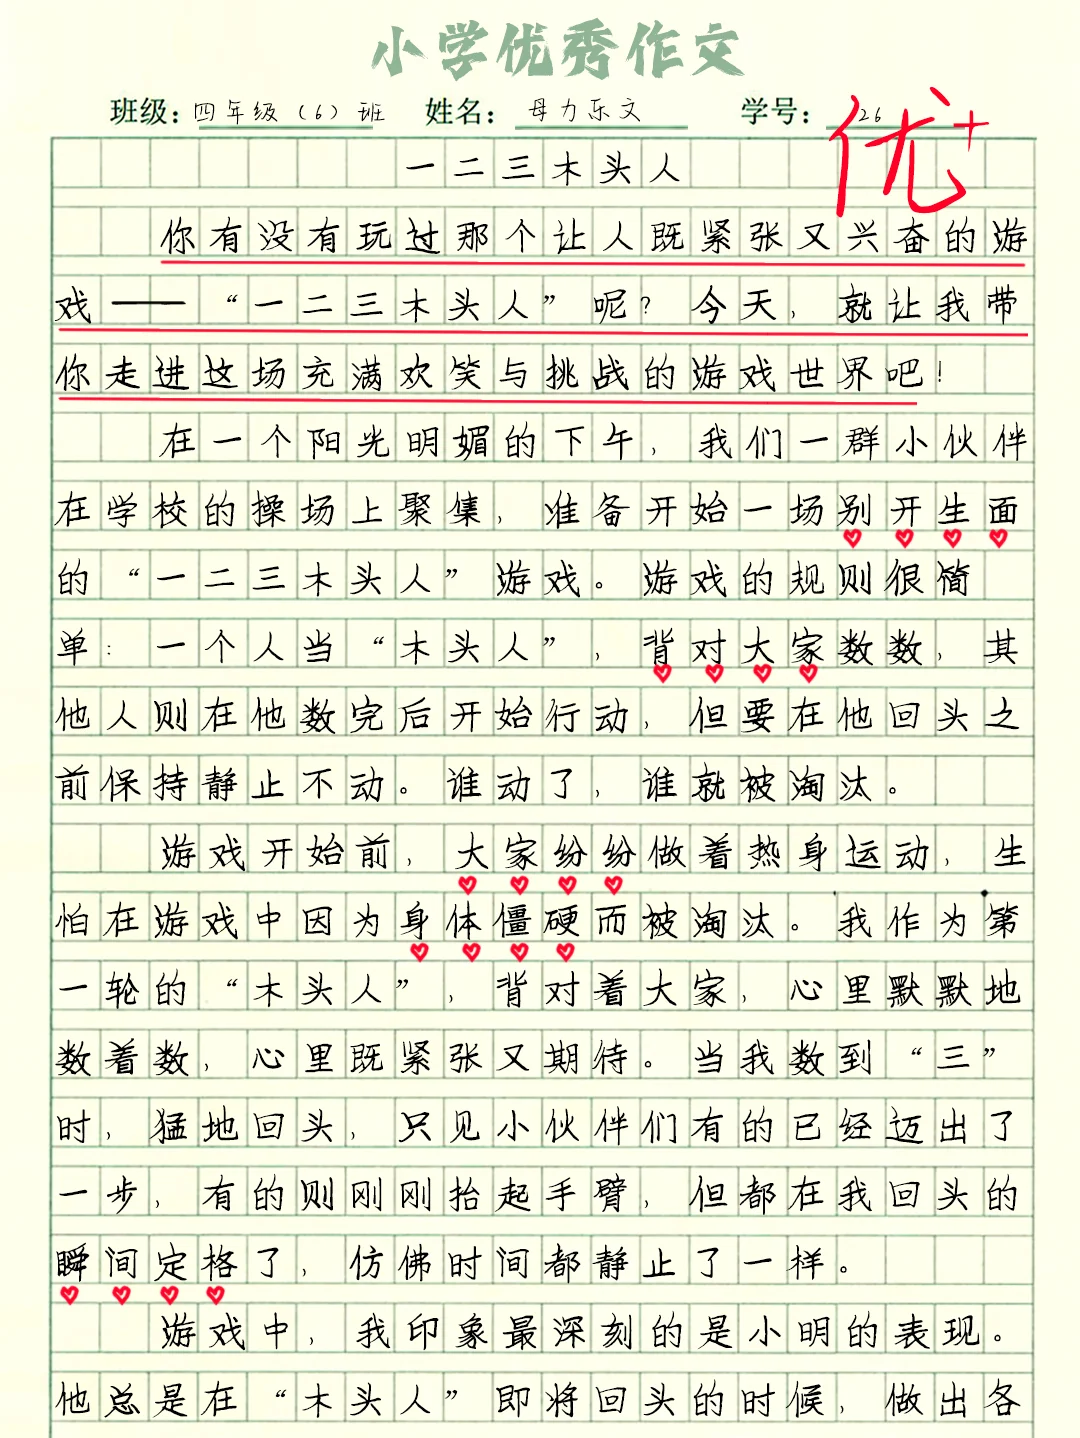 小学优秀作文
班级：四年级（6）班 姓名：母力乐文 学号：26
优+
一二三木头人
你有没有玩过那个让人既紧张又兴奋的游
戏——“一二三木头人”呢？今天，就让我带
你走进这场充满欢笑与挑战的游戏世界吧！
在一个阳光明媚的下午，我们一群小伙伴
在学校的操场上聚集，准备开始一场别开生面
的“一二三木头人”游戏。游戏的规则很简
单：一个人当“木头人”，背对大家数数，其
他人则在他数完后开始行动，但要在他回头之
前保持静止不动。谁动了，谁就被淘汰。
游戏开始前，大家纷纷做着热身运动，生
怕在游戏中因为身体僵硬而被淘汰。我作为第
一轮的“木头人”，背对着大家，心里默默地
数着数，心里既紧张又期待。当我数到“三”
时，猛地回头，只见小伙伴们有的已经迈出了
一步，有的则刚刚抬起手臂，但都在我回头的
瞬间定格了，仿佛时间都静止了一样。
游戏中，我印象最深刻的是小明的表现。
他总是在“木头人”即将回头的时候，做出各